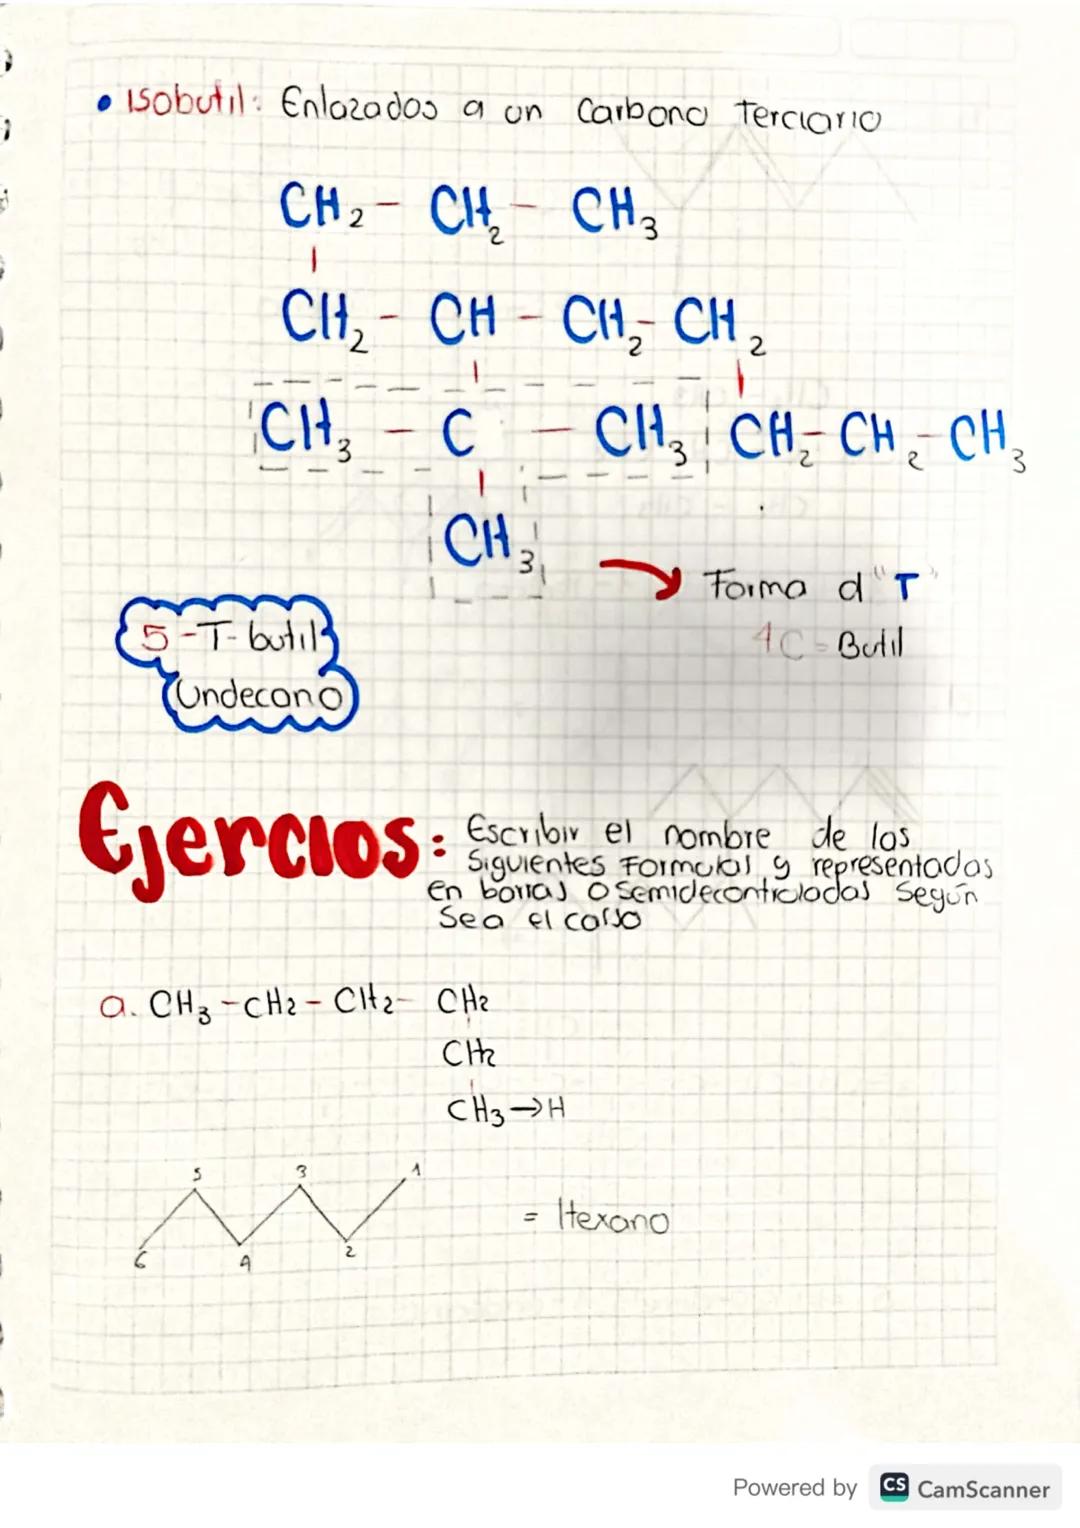 • Isobutil: Enlazados a un Carbono Terciario
CH2 - CH2 - CH3
CH2 - CH - CH2 - CH2
CH3 - C - CH3 CH2 - CH2 - CH3
CH3
Forma d "T"
4C = Butil
5-T-butil
Undecano
Ejercios: Escribir el nombre de las
Siguientes Formulas y representadas
en barras o Semidecontroladas Según
Sea el caso
a. CH3 - CH2 - CH2 - CH2
CH2
CH3 → H
5 3 1
6 4 2
= Hexano
Powered by CS CamScanner